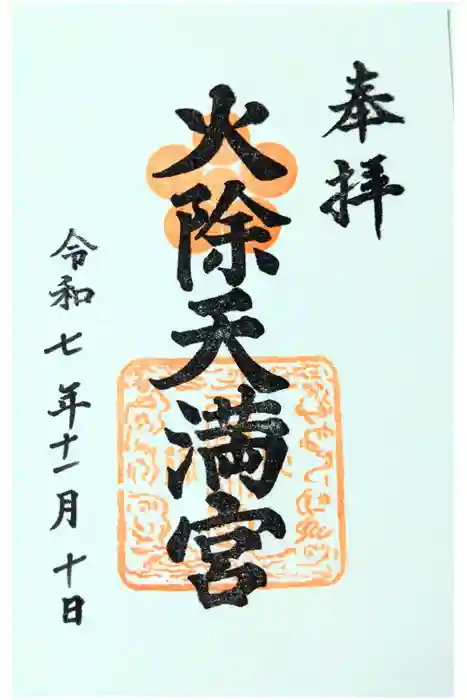 奉拝
火除天満宮
令和七年十一月十日